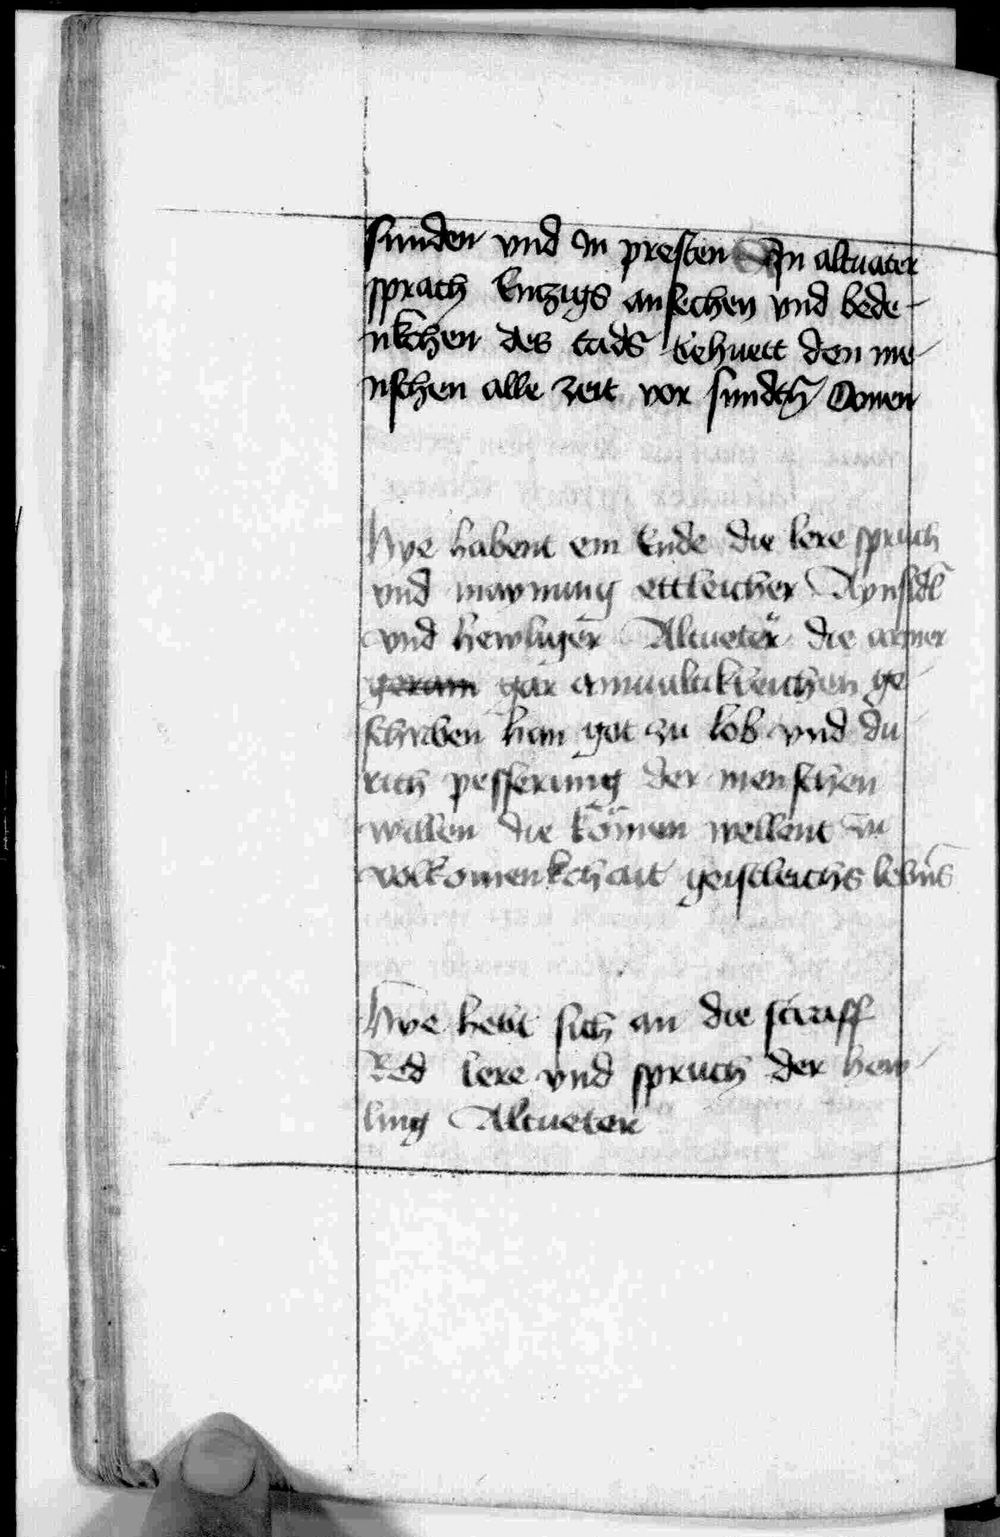 sunden vnd in presten Ein altuater
sprach Eintzigs ansechen vnd bede-
nkchen des tads behuett den me-
nschen alle zeit vor sundtn Amen
Hye habent ein Ende die lere spruch
vnd maynung ettleicher Aynsidl
vnd hewliger Altueter die armer
geram gar ainualtikleichen ge-
schriben han got zu lob vnd du
rich pesserung der menschen
willen die kömen wellent zu
volkomenkchait geistleichs lebens
Hye hebt sich an die straff
Red lere vnd spruch der hew-
ling Altueter